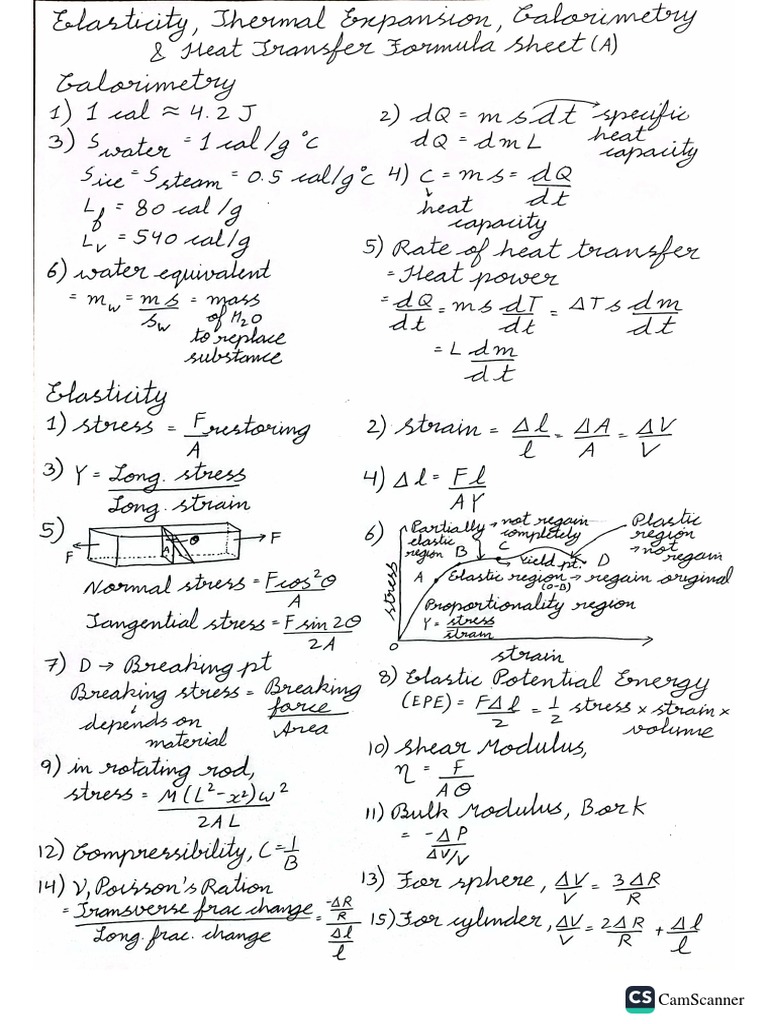 Elasticity, Thermal Expansion, Calorimetry
& Heat Transfer Formula Sheet (A)
Calorimetry
1) 1 cal ≈ 4.2 J
2) dQ = m s dt → specific heat capacity
dQ = dm L
3) S_water = 1 cal/g °C
S_ice = S_steam = 0.5 cal/g °C
L_f = 80 cal/g
L_v = 540 cal/g
4) C = m s = dQ/dt
↓
heat capacity
5) Rate of heat transfer
= Heat power
= dQ/dt = m s dT/dt = ΔT s dm/dt
= L dm/dt
6) water equivalent
= m_w = m s/s_w = mass
of H2O
to replace
substance
Elasticity
1) stress = F restoring/A
2) strain = Δl/l = ΔA/A = ΔV/V
3) Y = Long. stress/Long. strain
4) Δl = Fl/AY
5) F A θ F
Normal stress = F cos²θ/A
Tangential stress = F sin 2θ/2A
6) Partially elastic region → not regain completely
Plastic region → not regain
A B C D
Yield pt.
Elastic region → regain original
(O-B)
Proportionality region
Y = stress/strain
stress
O
strain
7) D → Breaking pt
Breaking stress = Breaking force/Area
↓
depends on
material
8) Elastic Potential Energy
(EPE) = FΔl/2 = 1/2 stress × strain ×
volume
9) in rotating rod,
stress = M(L²-x²)ω²/2AL
10) Shear Modulus,
η = F/Aθ
11) Bulk Modulus, B or K
= -ΔP/ΔV/V
12) Compressibility, C = 1/B
13) For sphere, ΔV/V = 3ΔR/R
14) ν, Poisson's Ration
= Transverse frac change/Long. frac. change = -ΔR/R/Δl/l
15) For cylinder, ΔV/V = 2ΔR/R + Δl/l
CS CamScanner